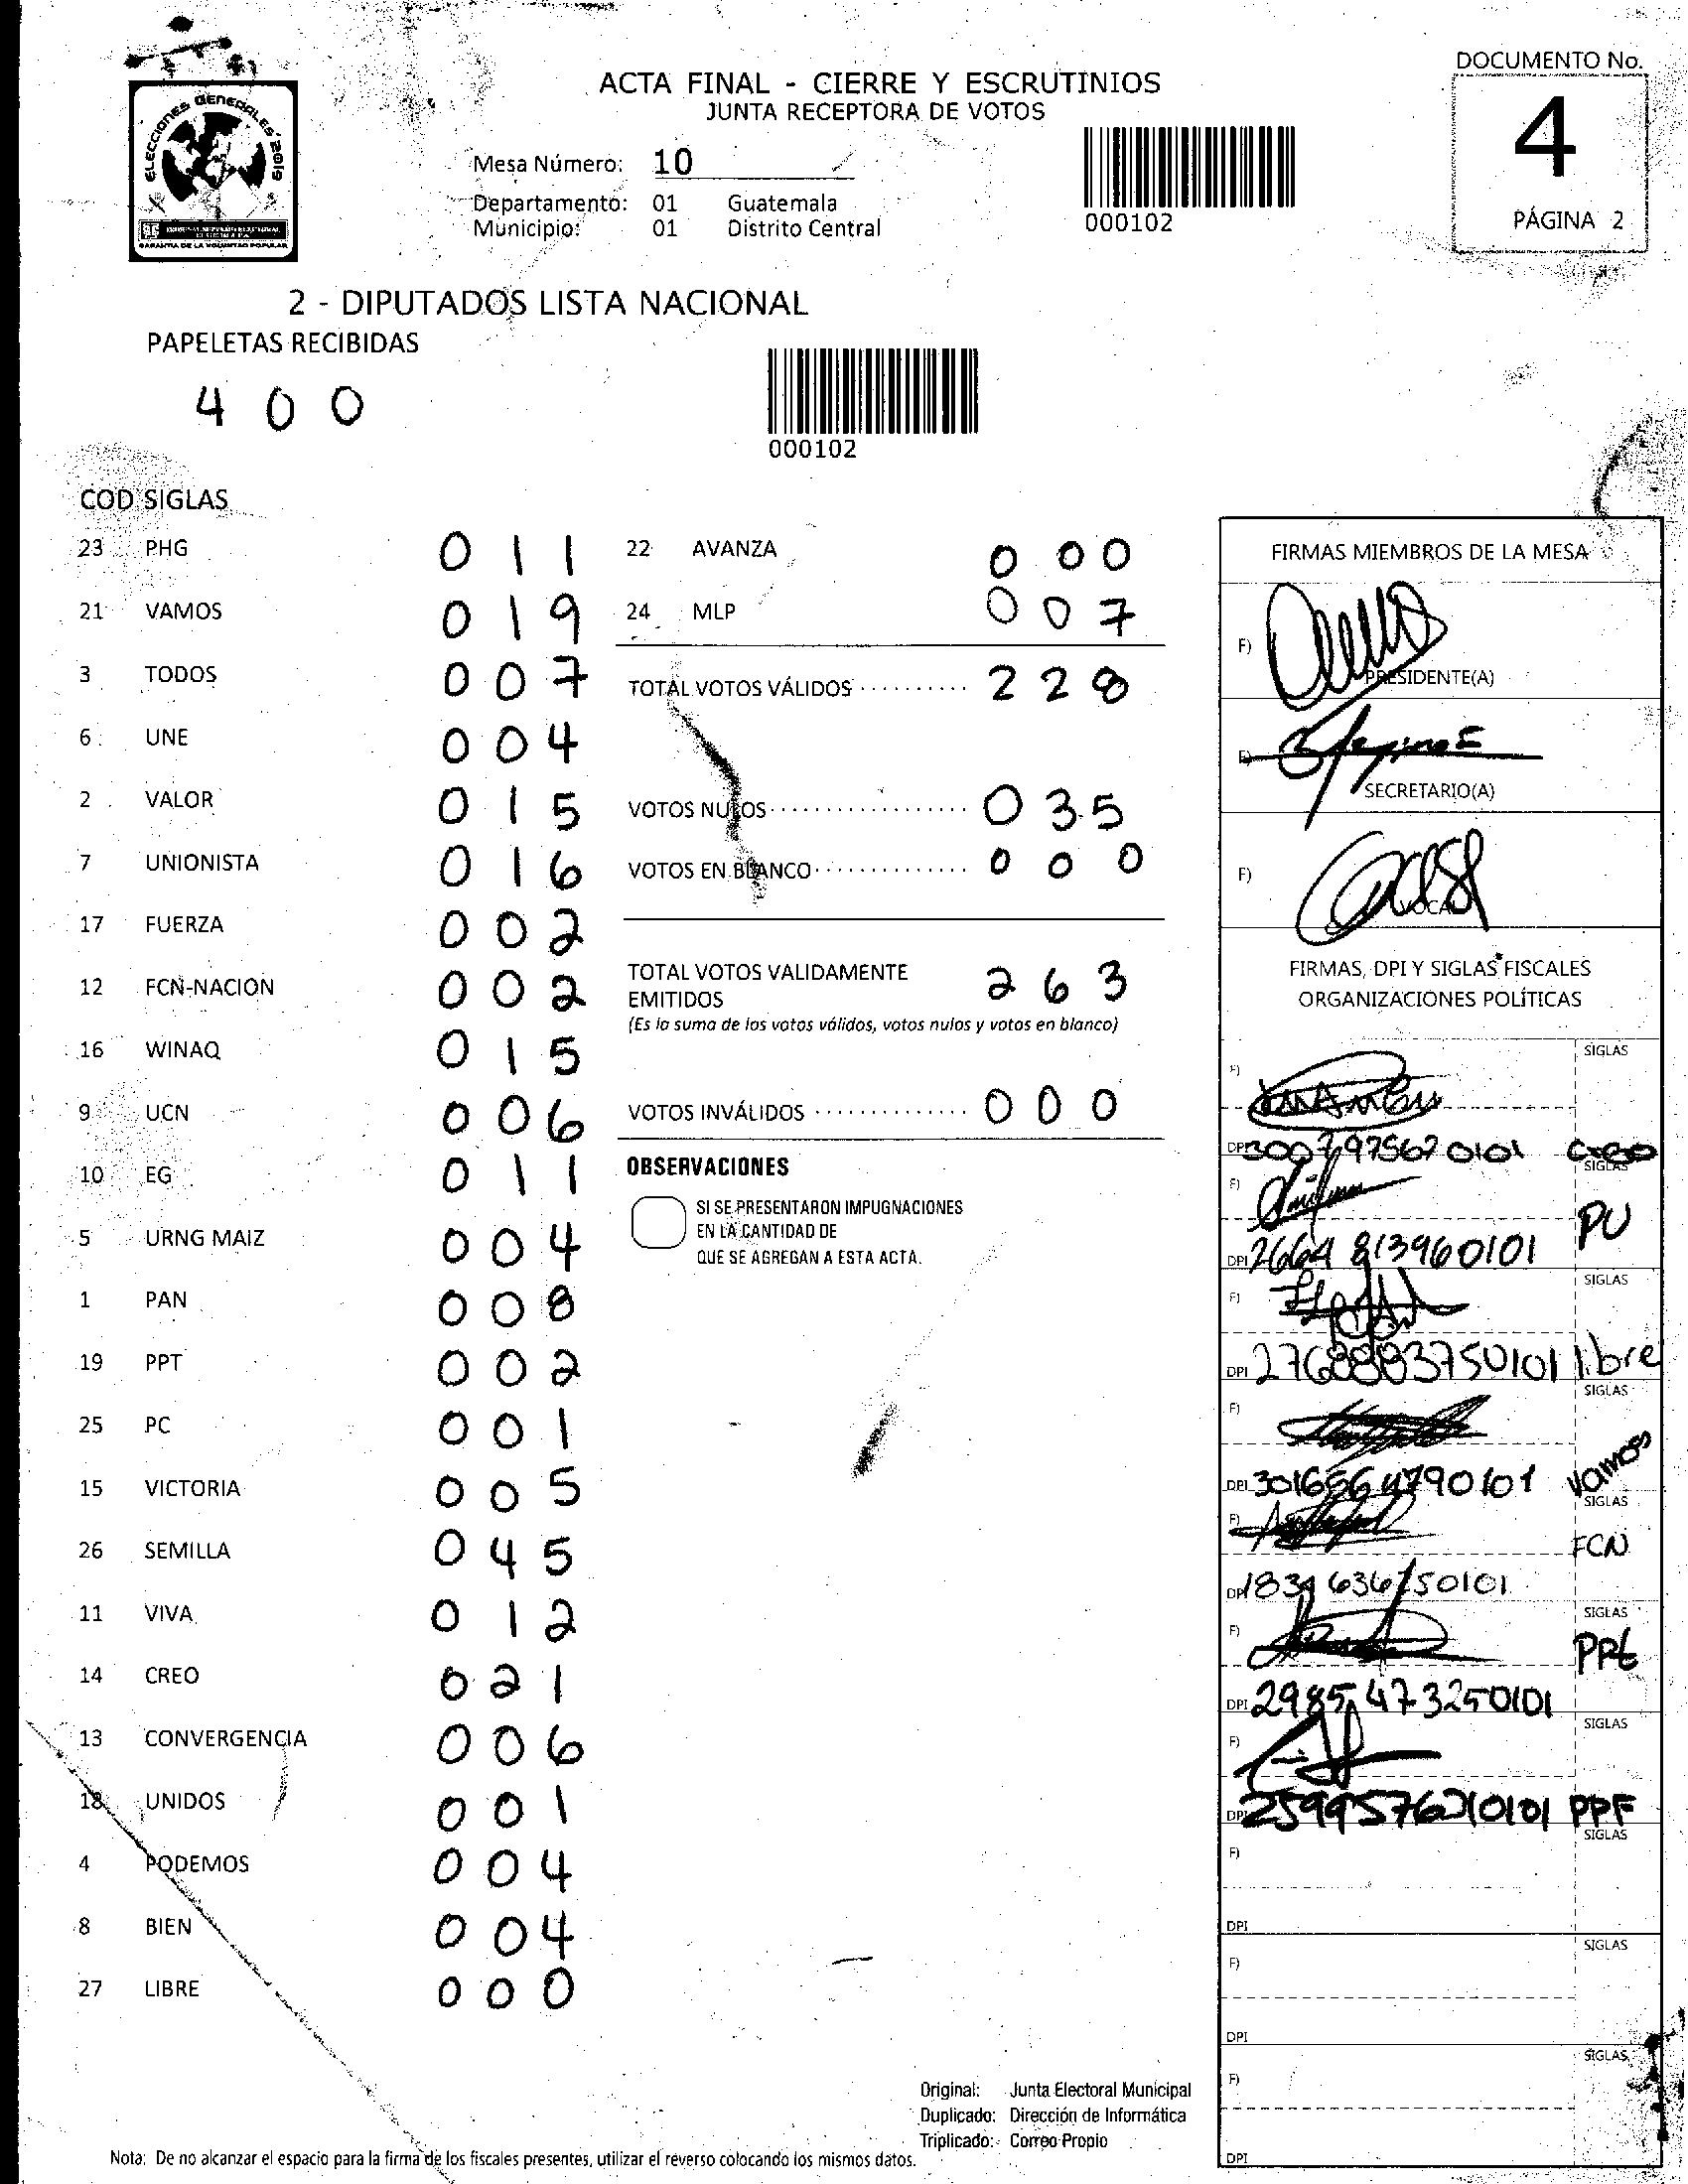 DOCUMENTO No.
4
PÁGINA 2
ACTA FINAL - CIERRE Y ESCRUTINIOS
JUNTA RECEPTORA DE VOTOS
ELECCIONES GENERALES 2019
GARANTIA DE LA VOLUNTAD POPULAR
Mesa Número: 10
Departamento: 01 Guatemala
Municipio: 01 Distrito Central
000102
2 - DIPUTADOS LISTA NACIONAL
PAPELETAS RECIBIDAS
4 0 0
000102
COD SIGLAS
23 PHG 0 1 1
21 VAMOS 0 1 9
3 TODOS 0 0 7
6 UNE 0 0 4
2 VALOR 0 1 5
7 UNIONISTA 0 1 6
17 FUERZA 0 0 2
12 FCN-NACION 0 0 2
16 WINAQ 0 1 5
9 UCN 0 0 6
10 EG 0 1 1
5 URNG MAIZ 0 0 4
1 PAN 0 0 8
19 PPT 0 0 2
25 PC 0 0 1
15 VICTORIA 0 0 5
26 SEMILLA 0 4 5
11 VIVA 0 1 2
14 CREO 0 2 1
13 CONVERGENCIA 0 0 6
18 UNIDOS 0 0 1
4 PODEMOS 0 0 4
8 BIEN 0 0 4
27 LIBRE 0 0 0
22 AVANZA 0 0 0
24 MLP 0 0 7
TOTAL VOTOS VÁLIDOS .......... 2 2 8
VOTOS NULOS .................. 0 3 5
VOTOS EN BLANCO .............. 0 0 0
TOTAL VOTOS VALIDAMENTE
EMITIDOS 2 6 3
(Es la suma de los votos válidos, votos nulos y votos en blanco)
VOTOS INVÁLIDOS .............. 0 0 0
OBSERVACIONES
SI SE PRESENTARON IMPUGNACIONES
EN LA CANTIDAD DE
QUE SE AGREGAN A ESTA ACTA.
FIRMAS MIEMBROS DE LA MESA
F)
PRESIDENTE(A)
F)
SECRETARIO(A)
F)
VOCAL
FIRMAS, DPI Y SIGLAS FISCALES
ORGANIZACIONES POLÍTICAS
SIGLAS
F)
DPI Creo
SIGLAS
F)
PU
DPI 2664 813960101
SIGLAS
F)
DPI libre
SIGLAS
F)
DPI Vamos
SIGLAS
F)
FCN
DPI
SIGLAS
F)
PPt
DPI 2985 473250101
SIGLAS
F)
DPI PPF
SIGLAS
F)
DPI
SIGLAS
F)
DPI
SIGLAS
F)
DPI
Original: Junta Electoral Municipal
Duplicado: Dirección de Informática
Triplicado: Correo Propio
Nota: De no alcanzar el espacio para la firma de los fiscales presentes, utilizar el reverso colocando los mismos datos.